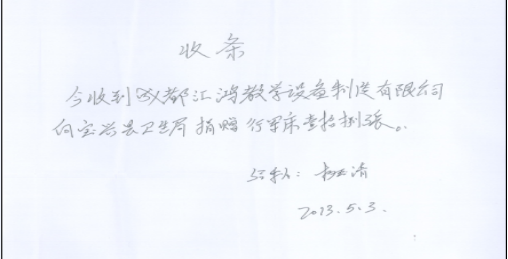 收条
今收到成都汇鸿教学设备制造有限公司
向宝兴县卫生局捐赠行军床壹拾捌张。
经手人：清
2013.5.3.